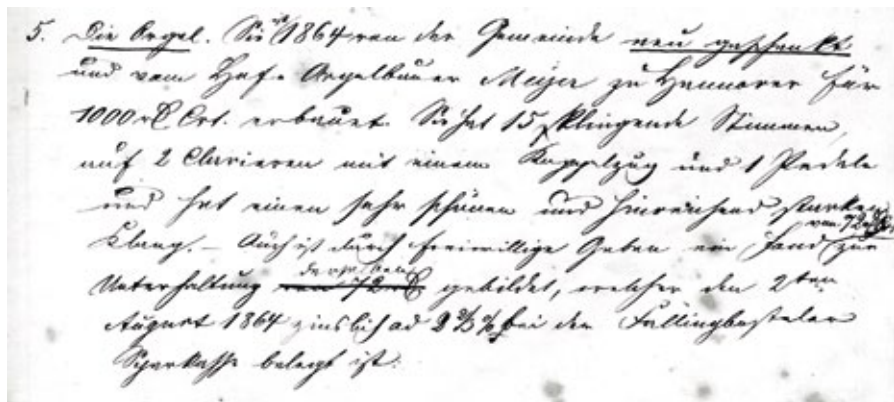 5. Die Orgel. Sie ist 1864 von der Gemeinde neu geschenkt
und vom Hof-Orgelbauer Meyer zu Hannover für
1000 rℓ Crt. erbauet. Sie hat 15 klingende Stimmen,
auf 2 Clavieren mit einem Koppelzug und 1 Pedale
und hat einen sehr schönen und hinreichend starken
Klang. – Auch ist durch freiwillige Gaben ein Fond von 72 rℓ zur
Unterhaltung derselben gebildet, welcher den 2ten
August 1864 zinslich ad 3 1/3 % bei der Fallingbosteler
Sparkasse belegt ist.